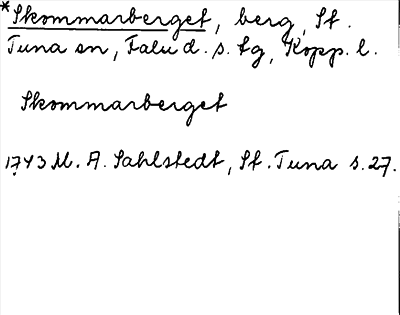 *Skommarberget, berg, St.
Tuna sn, Falu d. s. tg, Kopp. l.
Skommarberget
1743 M. A. Sahlstedt, St. Tuna s. 27.